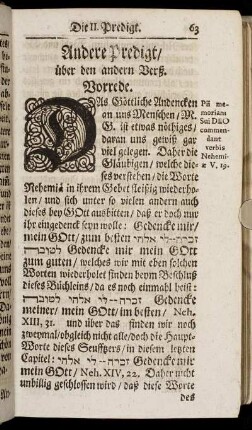 Die II. Predigt. 63
Andere Predigt/
über den andern Verß.
Vorrede.
DAs Göttliche Andencken
an uns Menschen/ M.
G. ist etwas nöthiges/
daran uns gewiß gar
viel gelegen. Daher die
Gläubigen/ welche die-
ses verstehen/ die Worte
Nehemiä in ihrem Gebet fleißig wiederho-
len/ und sich unter so vielen andern auch
dieses bey GOtt ausbitten/ daß er doch nur
ihr eingedenck seyn wolle: Gedencke mir/
mein GOtt/ zum besten זכרה-לי אלהי
לטובה Gedencke mir mein GOtt
zum guten/ welches wir mit eben solchen
Worten wiederholet finden beym Beschluß
dieses Büchleins/ da es noch einmahl heist:
זכרה-לי אלהי לטובה Gedencke
meiner/ mein GOtt/ im besten/ Neh.
XIII, 31. und über das finden wir noch
zweymal/ obgleich nicht alle/ doch die Haupt-
Worte dieses Seuffzers/ in diesem letzten
Capitel: זכרה-לי אלהי Gedencke mir
mein GOtt/ Neh. XIV, 22. Daher nicht
unbillig geschlossen wird/ daß diese Worte
des
Pii me-
moriam
Sui DEO
commen-
dant
verbis
Nehemi-
æ V, 19.